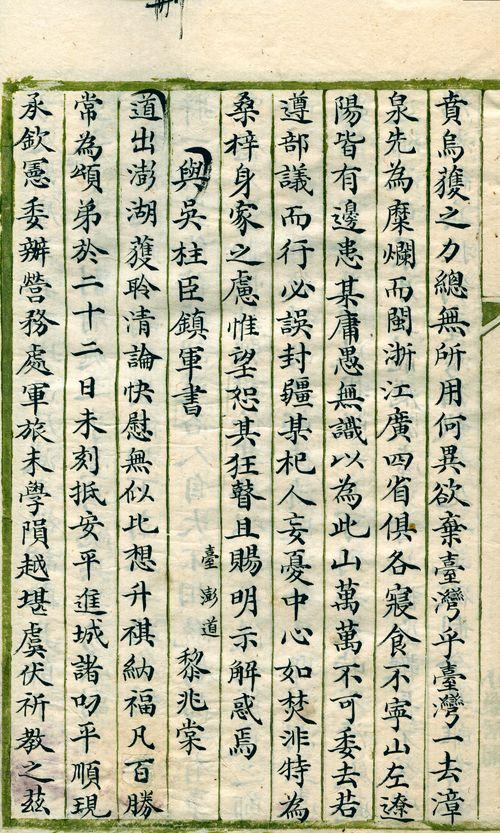 賁烏獲之力總無所用何異欲棄臺灣乎臺灣一去漳
泉先為糜爛而閩浙江廣四省俱各寢食不寧山左遼
陽皆有邊患某庸愚無識以為此山萬萬不可委去若
遵部議而行必誤封疆某杞人妄憂中心如焚非特為
桑梓身家之慮惟望恕其狂瞽且賜明示解惑焉
與吳柱臣鎮軍書 臺澎道 黎兆棠
道出澎湖獲聆清論快慰無似比想升祺納福凡百勝
常為頌弟於二十二日未刻抵安平進城諸叨平順現
承欽憲委辦營務處軍旅未學隕越堪虞伏祈教之茲